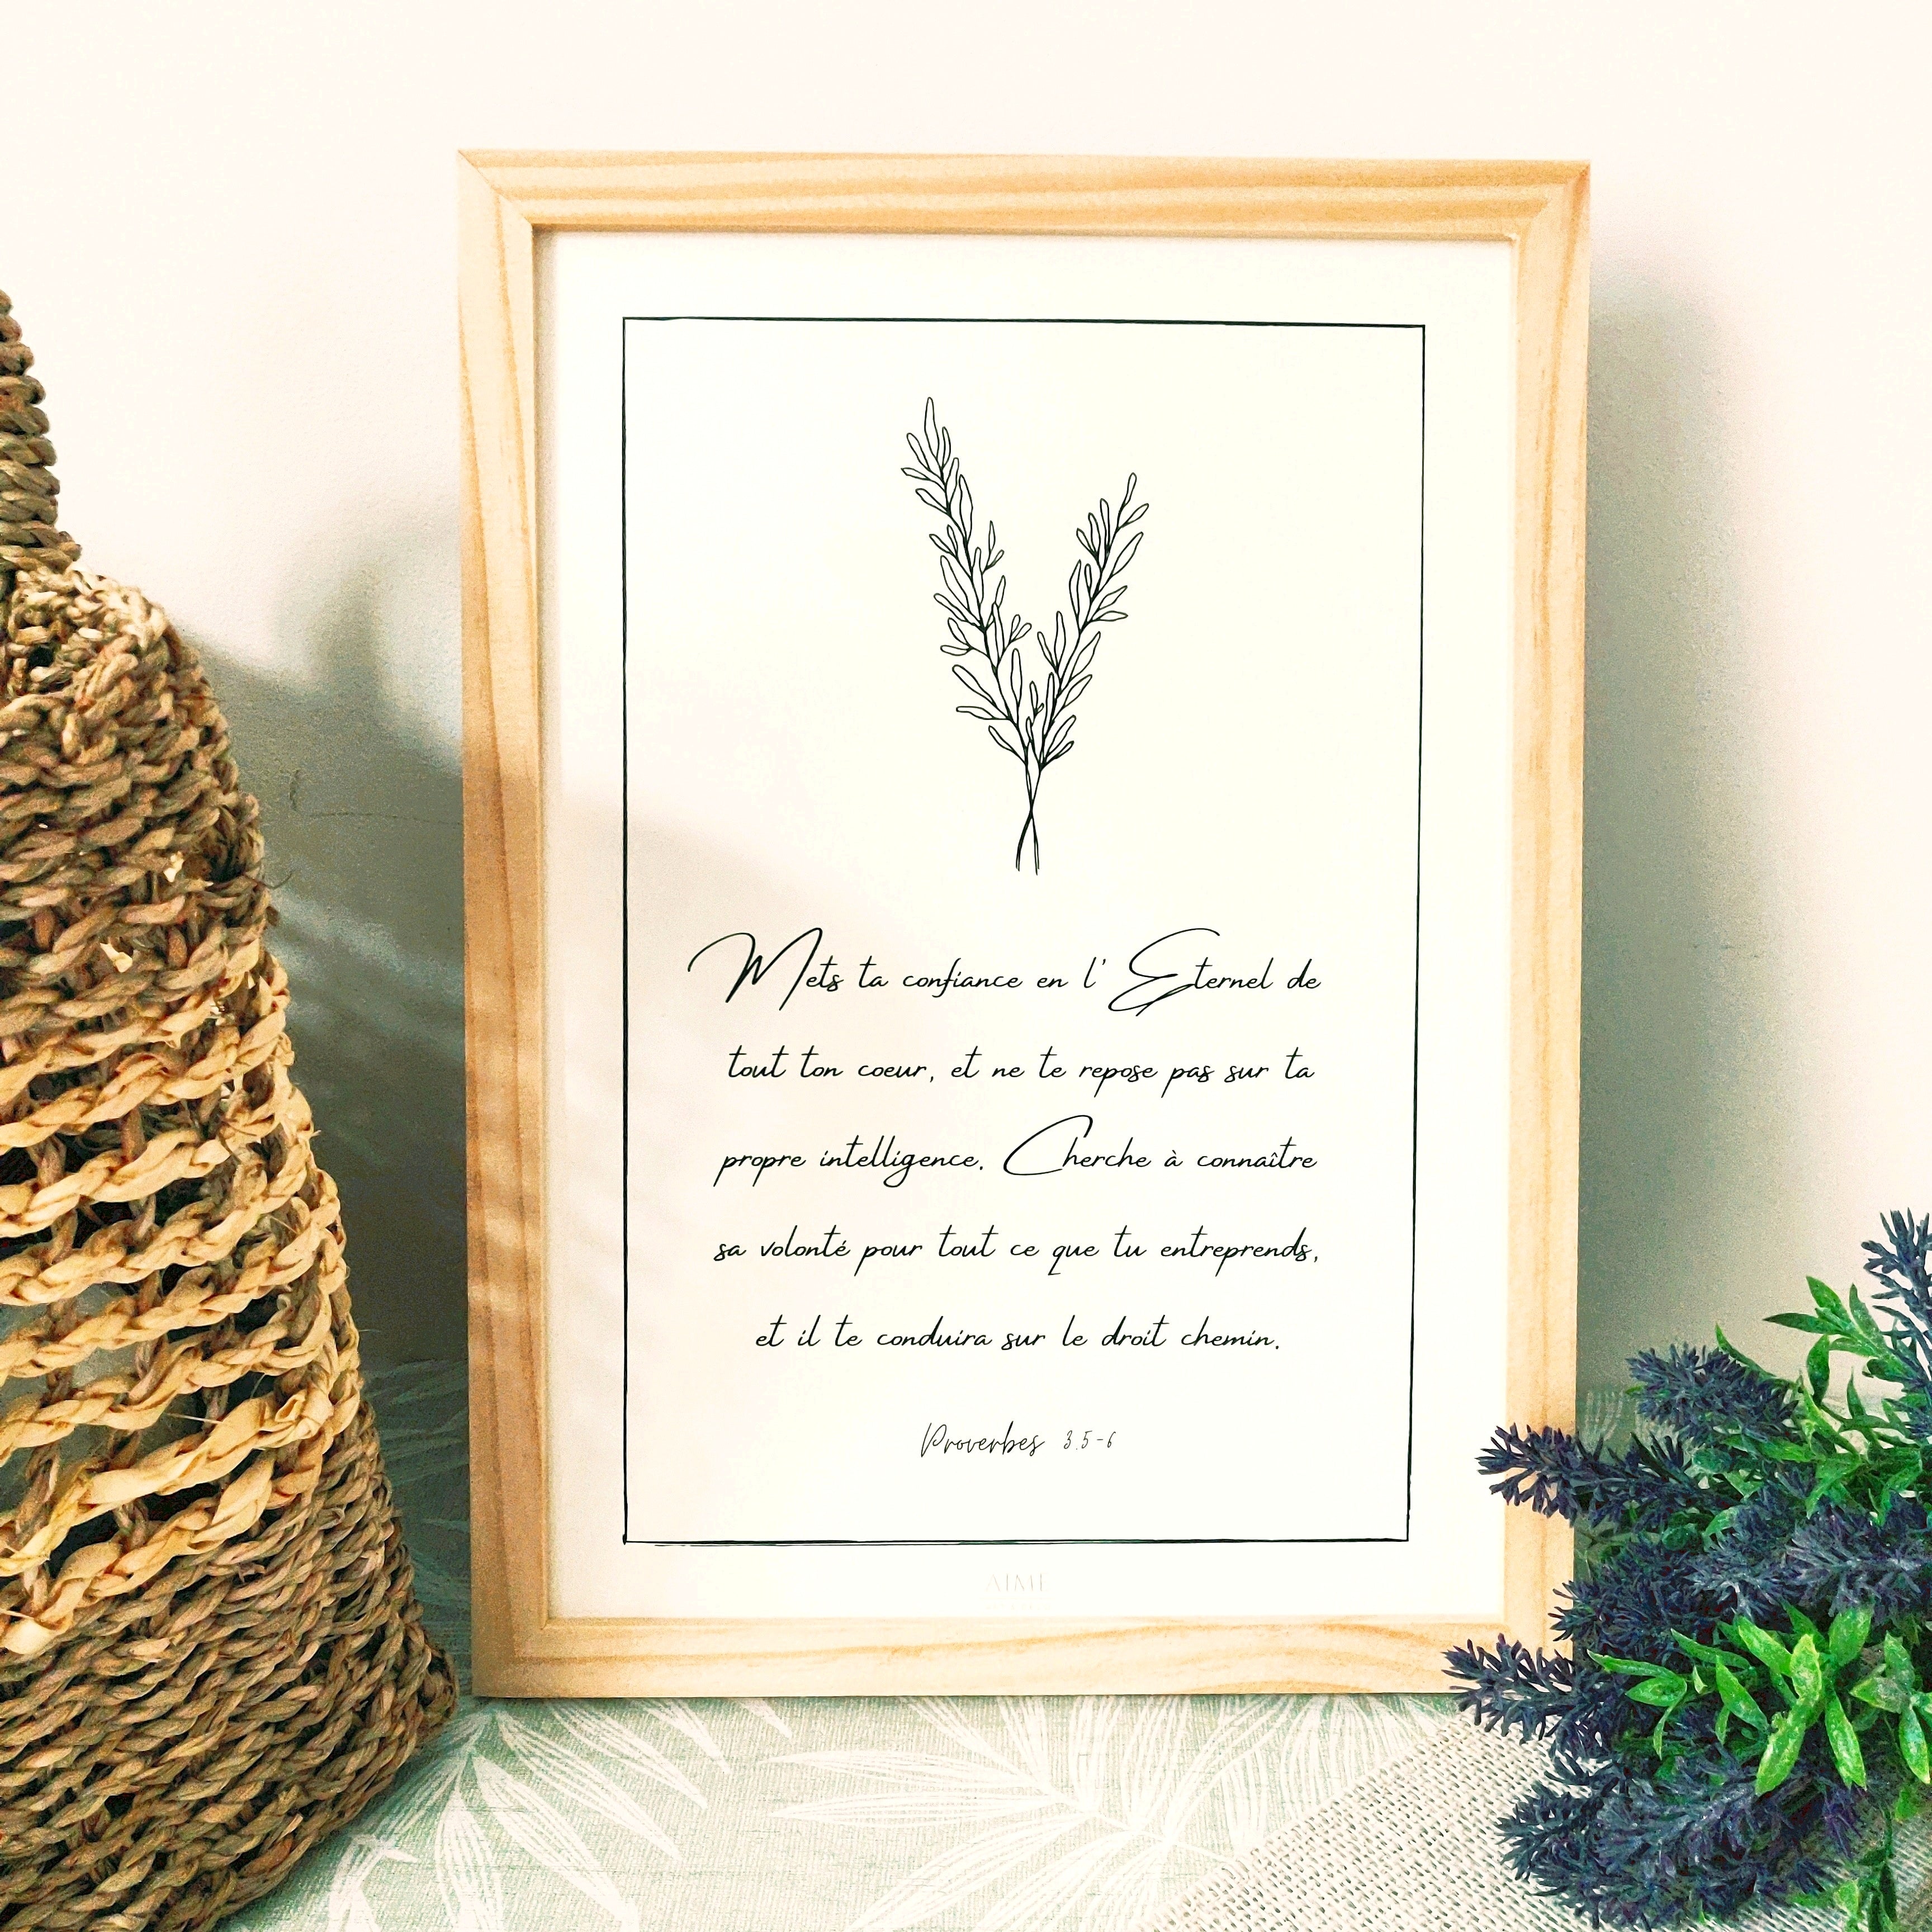 Mets ta confiance en l' Eternel de
tout ton coeur, et ne te repose pas sur ta
propre intelligence. Cherche à connaître
sa volonté pour tout ce que tu entreprends,
et il te conduira sur le droit chemin.
Proverbes 3.5-6